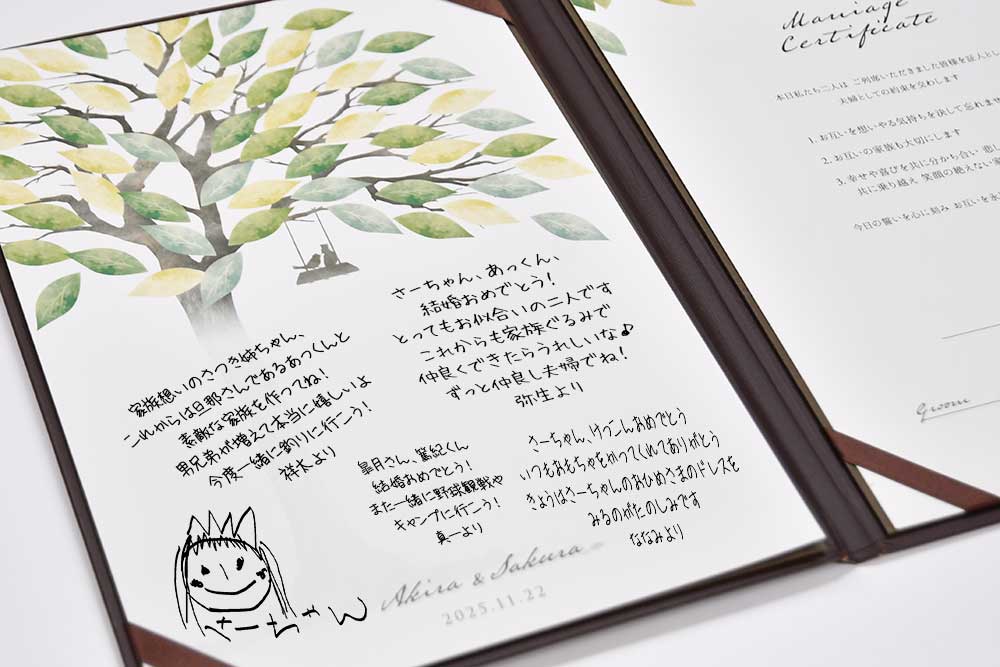 さーちゃん、あっくん、
結婚おめでとう!
とってもお似合いの二人です
これからも家族ぐるみで
仲良くできたらうれしいな♪
ずっと仲良し夫婦でね!
弥生より
家族想いのさつき姉ちゃん、
これからは旦那さんであるあっくんと
素敵な家族を作ってね!
男兄弟が増えて本当に嬉しいよ
今度一緒に釣りに行こう!
祥太より
皐月さん、篤紀くん
結婚おめでとう!
また一緒に野球観戦や
キャンプに行こう!
真一より
さーちゃん、けっこんおめでとう
いつもおもちゃをかってくれてありがとう
きょうはさーちゃんのおひめさまのドレスを
みるのがたのしみです
ななみより
さーちゃん
Akira & Sakura
2025.11.22
Marriage
Certificate
本日私たち二人は ご列席いただきました皆様を証人とし
夫婦としての約束を交わします
1. お互いを想いやる気持ちを決して忘れま
2. お互いの家族も大切にします
3. 幸せや喜びを共に分かち合い 悲し
共に乗り越え 笑顔の絶えない
今日の誓いを心に刻み お互いを永
Groom